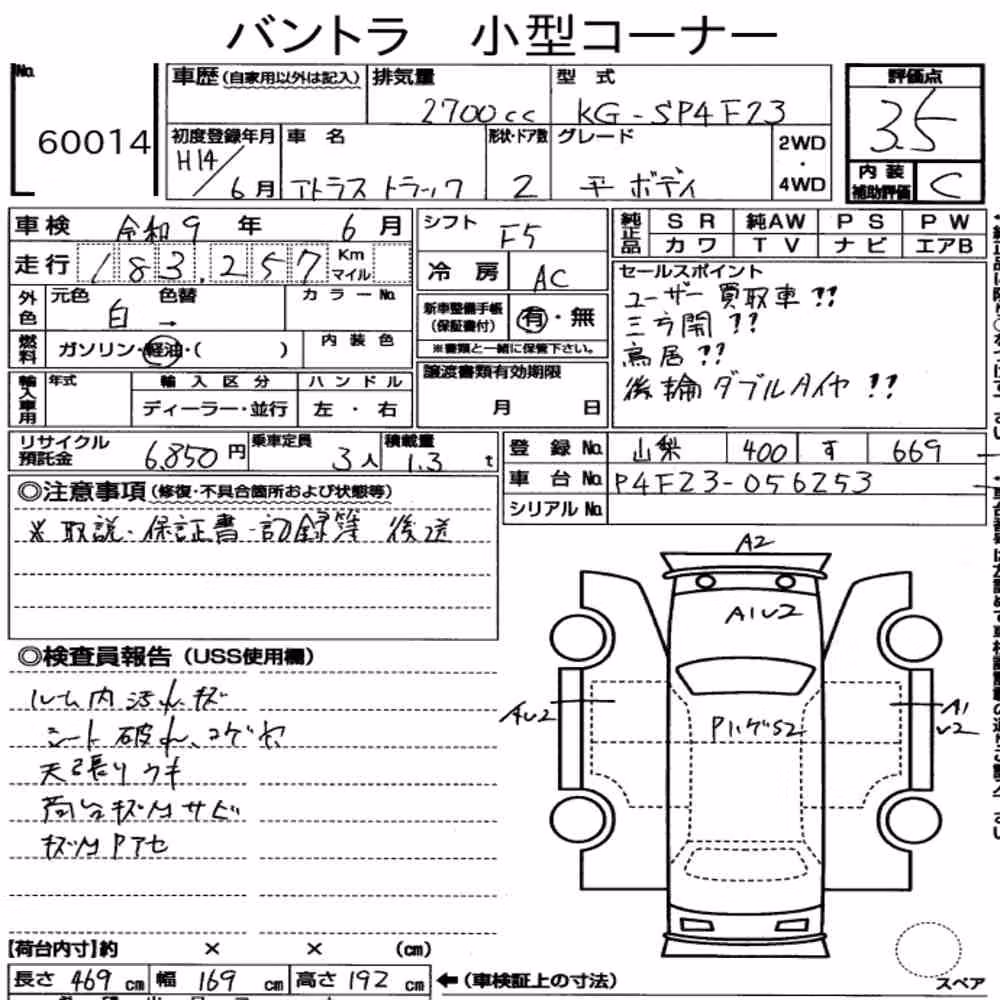 バントラ 小型コーナー
No. 60014
車歴(自家用以外は記入) 排気量 2700cc 型式 KG-SP4F23
評価点 3.5
初度登録年月 H14/6月 車名 アトラス トラック 形状・ドア数 2 グレード 平ボディ 2WD・4WD
内装補助評価 C
車検 令和9年6月 シフト F5 純正品 SR 純AW PS PW
カワ TV ナビ エアB
走行 183,257 Km マイル 冷房 AC
セールスポイント
ユーザー買取車!!
三方開!!
鳥居!!
後輪ダブルタイヤ!!
外色 元色 白 → 色替 カラーNo.
新車整備手帳(保証書付) 有・無
※書類と一緒に保管下さい。
燃料 ガソリン・軽油・( ) 内装色
輸入車用 年式 輸入区分 ハンドル
ディーラー・並行 左・右
譲渡書類有効期限 月 日
リサイクル預託金 6,850円 乗車定員 3人 積載量 1.3t
登録No. 山梨 400 す 669
車台No. P4F23-056253
シリアルNo.
◎注意事項(修復・不具合箇所および状態等)
※取説・保証書・記録簿 後送
◎検査員報告(USS使用欄)
ルーム内汚れ、キズ
シート破れ、コゲ穴
天張りウキ
荷台キズ凹サビ
キズ凹Pアセ
A2
A1U2
AU2
A1
U2
PハゲS2
スペア
【荷台内寸】約 × × (cm)
長さ 469 cm 幅 169 cm 高さ 192 cm ←(車検証上の寸法)